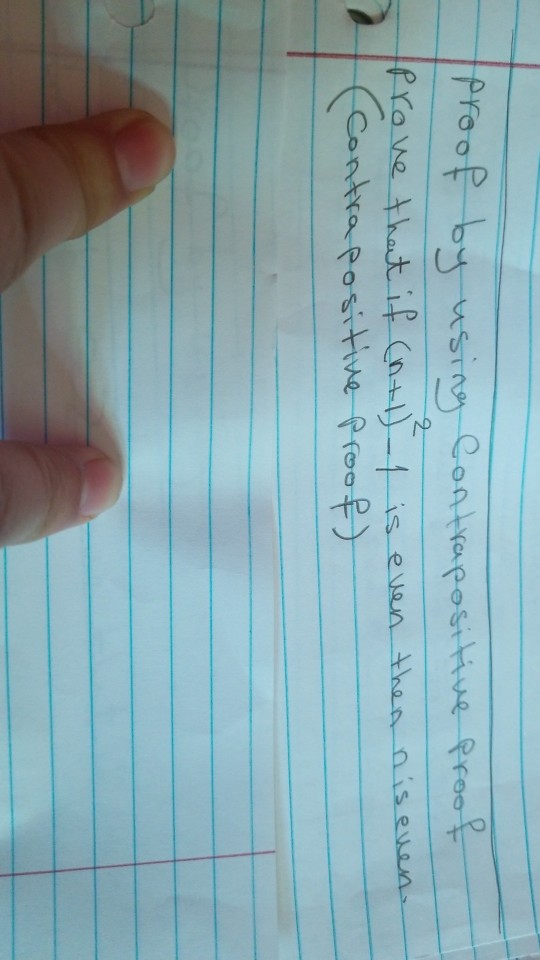 Proof by using Contrapositive proof
Prove that if (n+1)²-1 is even then n is even.
(Contrapositive Proof)